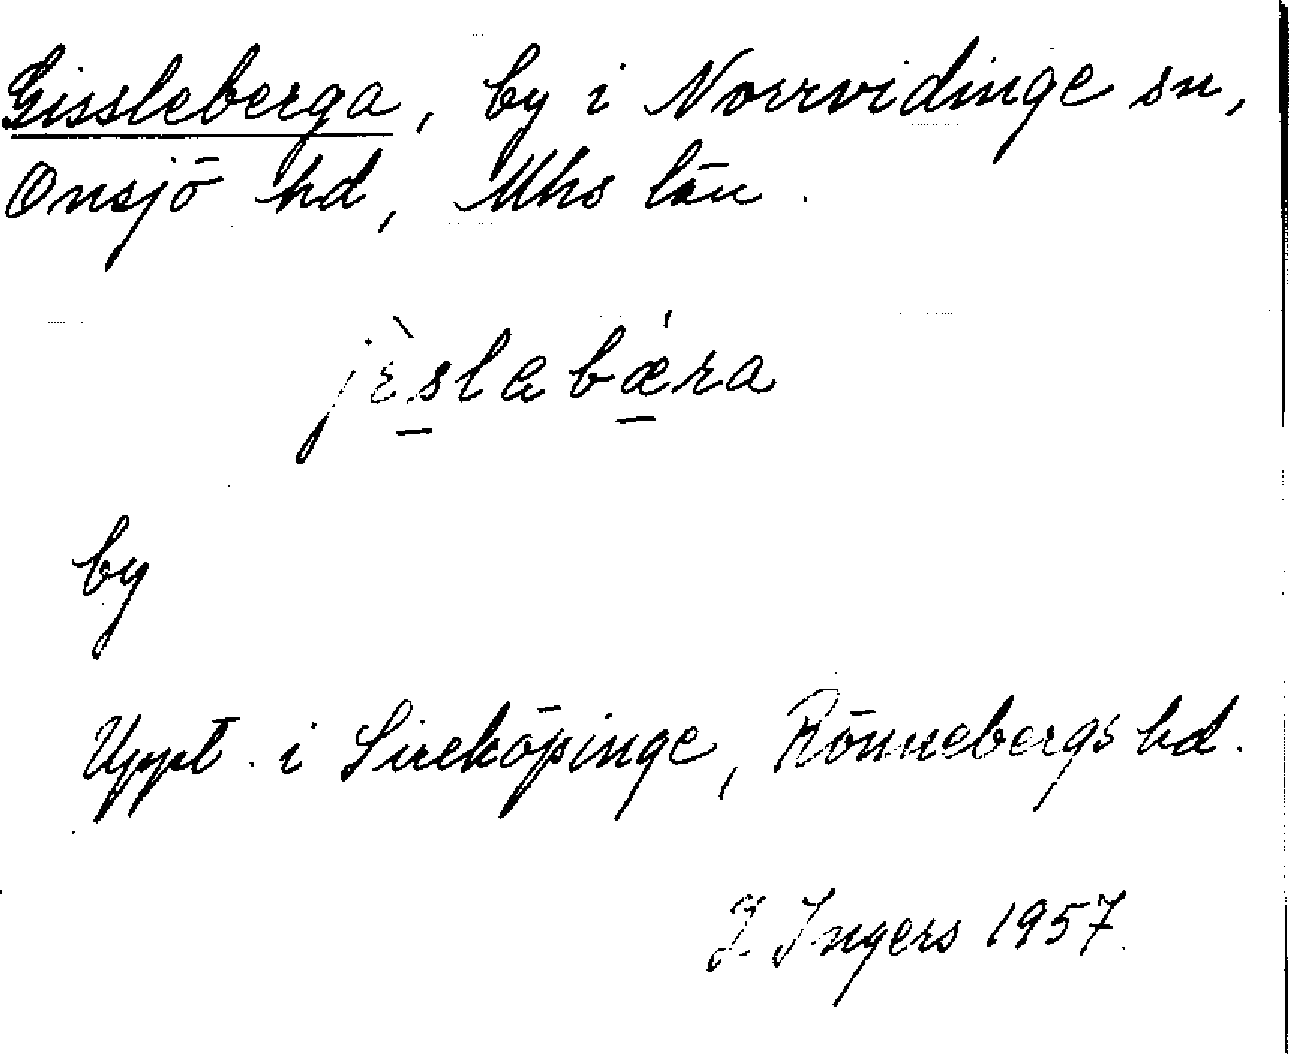 Gissleberga, by i Norrvidinge sn,
Onsjö hd, Mhs län.
jèslabǽra
by
Uppt. i Sireköpinge, Rönnebergs hd.
I. Ingers 1957.